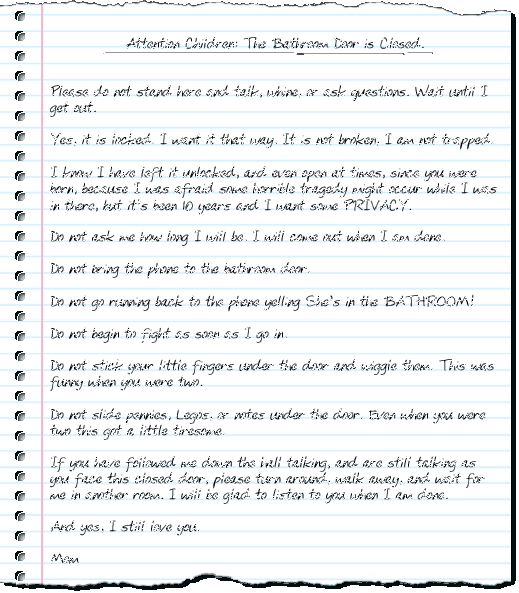 Attention Children: The Bathroom Door is Closed.
Please do not stand here and talk, whine, or ask questions. Wait until I
get out.
Yes, it is locked. I want it that way. It is not broken, I am not trapped.
I know I have left it unlocked, and even open at times, since you were
born, because I was afraid some horrible tragedy might occur while I was
in there, but it's been 10 years and I want some PRIVACY.
Do not ask me how long I will be. I will come out when I am done.
Do not bring the phone to the bathroom door.
Do not go running back to the phone yelling She's in the BATHROOM!
Do not begin to fight as soon as I go in.
Do not stick your little fingers under the door and wiggle them. This was
funny when you were two.
Do not slide pennies, Legos, or notes under the door. Even when you were
two this got a little tiresome.
If you have followed me down the hall talking, and are still talking as
you face this closed door, please turn around, walk away, and wait for
me in another room. I will be glad to listen to you when I am done.
And yes, I still love you.
Mom